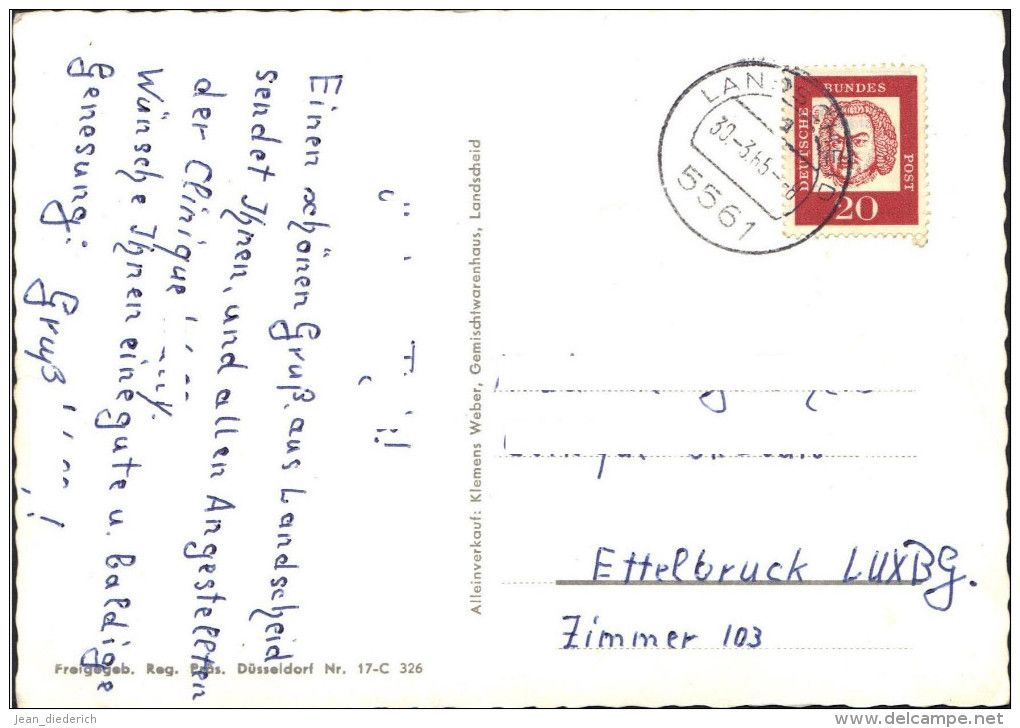 Einen schönen Gruß, aus Landscheid
sendet Ihnen, und allen Angestellten
der Clinique
Wünsche Ihnen eine gute u. baldige
Genesung;
Gruß
Alleinverkauf: Klemens Weber, Gemischtwarenhaus, Landscheid
Freigegeb. Reg. Präs. Düsseldorf Nr. 17-C 326
LANDSCHEID
30.-3.65-8
5561
DEUTSCHE
BUNDES
POST
20
Ettelbruck LUXBG.
Zimmer 103
jean_diederich
www.delcampe.net